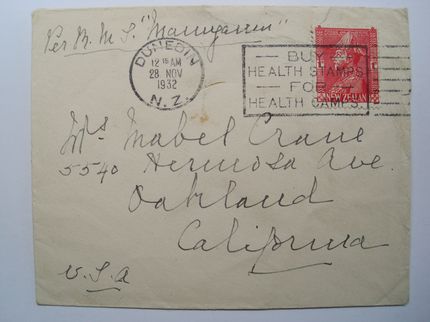 Per R. M. S. "Maunganui"
DUNEDIN
12 15 AM
28 NOV
1932
N.Z.
BUY
HEALTH STAMPS
FOR
HEALTH CAMPS.
NEW ZEALAND
Mrs Mabel Crane
5540 Hermosa Ave.
Oakland
California
U.S.A